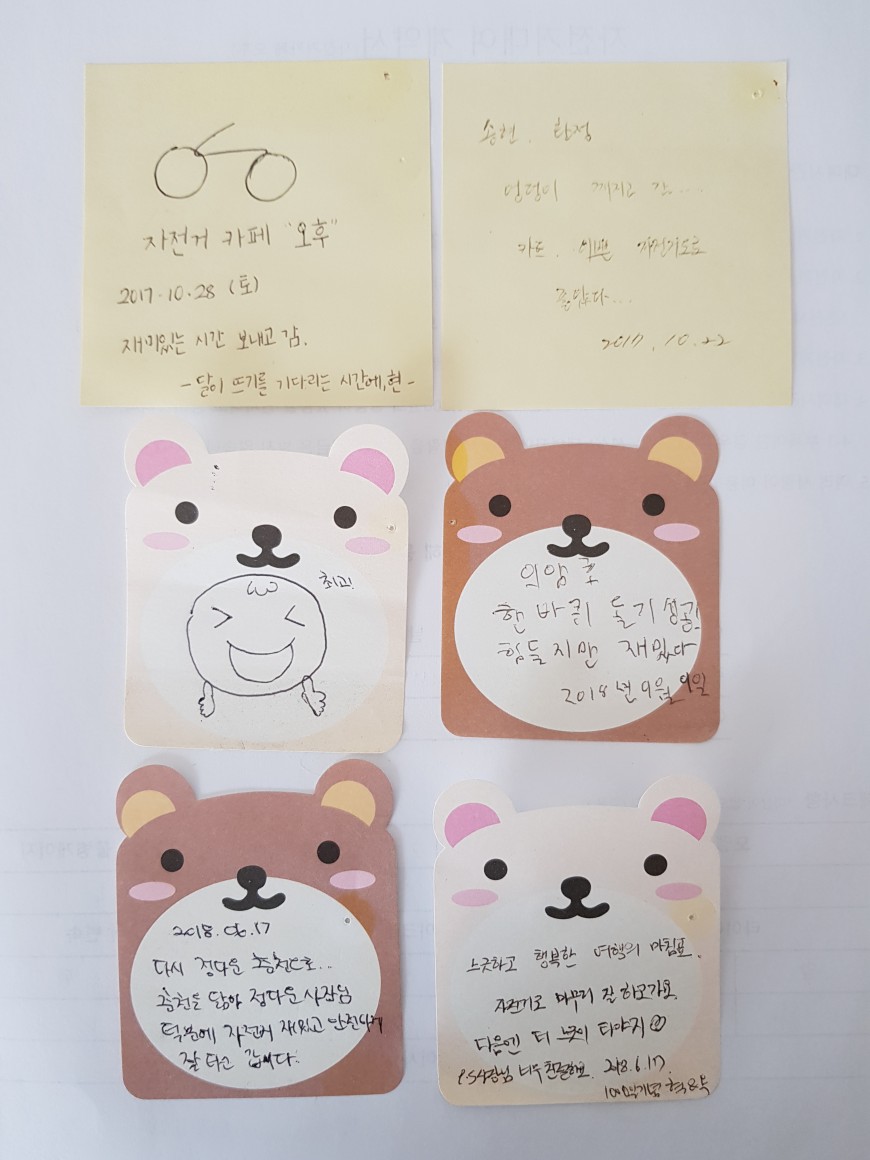 자전거 카페 "오후"
2017.10.28 (토)
재미있는 시간 보내고 감.
- 달이 뜨기를 기다리는 시간에, 현 -
송현.
엉덩이 깨지고 감....
카드. 예쁜 자전거도로
좋았다...
2017.10.22
최고!
의암호
한 바퀴 돌기 성공!
힘들지만 재밌다
2018년 9월 9일
2018.06.17
다시 정다운 춘천으로...
춘천을 닮아 정다운 사장님
덕분에 자전거 재밌고 안전하게
잘 타고 갑니다.
느긋하고 행복한 여행의 마침표.
자전거로 마무리 잘 하고가요.
다음엔 더 느긋이 타야지
P.S 사장님 너무 친절해요. 2018.6.17.